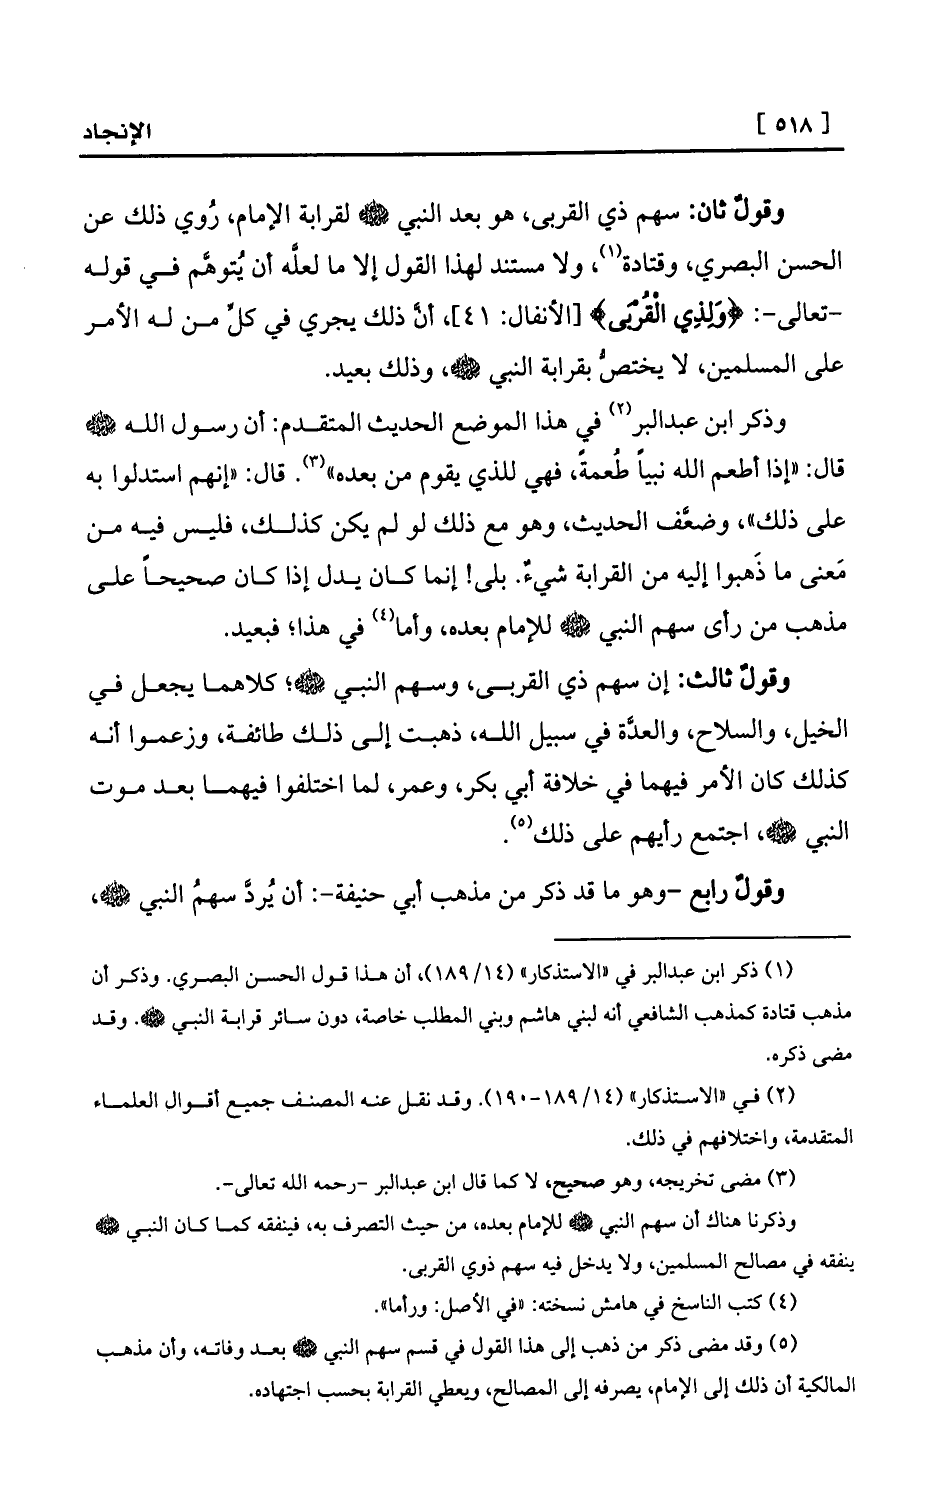 [ ٥١٨ ] الإنجاد
وقولٌ ثان: سهم ذي القربى، هو بعد النبي ﷺ لقرابة الإمام، رُوي ذلك عن
الحسن البصري، وقتادة(١)، ولا مستند لهذا القول إلا ما لعلَّه أن يُتوهَّم في قوله
-تعالى-: ﴿وَلِذِي الْقُرْبَى﴾ [الأنفال: ٤١]، أنَّ ذلك يجري في كلِّ من له الأمر
على المسلمين، لا يختصُّ بقرابة النبي ﷺ، وذلك بعيد.
وذكر ابن عبدالبر(٢) في هذا الموضع الحديث المتقدم: أن رسول الله ﷺ
قال: «إذا أطعم الله نبياً طُعمةً، فهي للذي يقوم من بعده»(٣). قال: «إنهم استدلوا به
على ذلك»، وضعَّف الحديث، وهو مع ذلك لو لم يكن كذلك، فليس فيه من
مَعنى ما ذَهبوا إليه من القرابة شيءٌ. بلى! إنما كان يدل إذا كان صحيحاً على
مذهب من رأى سهم النبي ﷺ للإمام بعده، وأما(٤) في هذا؛ فبعيد.
وقولٌ ثالث: إن سهم ذي القربى، وسهم النبي ﷺ؛ كلاهما يجعل في
الخيل، والسلاح، والعدَّة في سبيل الله، ذهبت إلى ذلك طائفة، وزعموا أنه
كذلك كان الأمر فيهما في خلافة أبي بكر، وعمر، لما اختلفوا فيهما بعد موت
النبي ﷺ، اجتمع رأيهم على ذلك(٥).
وقولٌ رابع -وهو ما قد ذكر من مذهب أبي حنيفة-: أن يُردَّ سهمُ النبي ﷺ،
(١) ذكر ابن عبدالبر في «الاستذكار» (١٤/ ١٨٩)، أن هذا قول الحسن البصري. وذكر أن
مذهب قتادة كمذهب الشافعي أنه لبني هاشم وبني المطلب خاصة، دون سائر قرابة النبي ﷺ. وقد
مضى ذكره.
(٢) في «الاستذكار» (١٤/ ١٨٩-١٩٠). وقد نقل عنه المصنف جميع أقوال العلماء
المتقدمة، واختلافهم في ذلك.
(٣) مضى تخريجه، وهو صحيح، لا كما قال ابن عبدالبر -رحمه الله تعالى-.
وذكرنا هناك أن سهم النبي ﷺ للإمام بعده، من حيث التصرف به، فينفقه كما كان النبي ﷺ
ينفقه في مصالح المسلمين، ولا يدخل فيه سهم ذوي القربى.
(٤) كتب الناسخ في هامش نسخته: «في الأصل: ورأما».
(٥) وقد مضى ذكر من ذهب إلى هذا القول في قسم سهم النبي ﷺ بعد وفاته، وأن مذهب
المالكية أن ذلك إلى الإمام، يصرفه إلى المصالح، ويعطي القرابة بحسب اجتهاده.